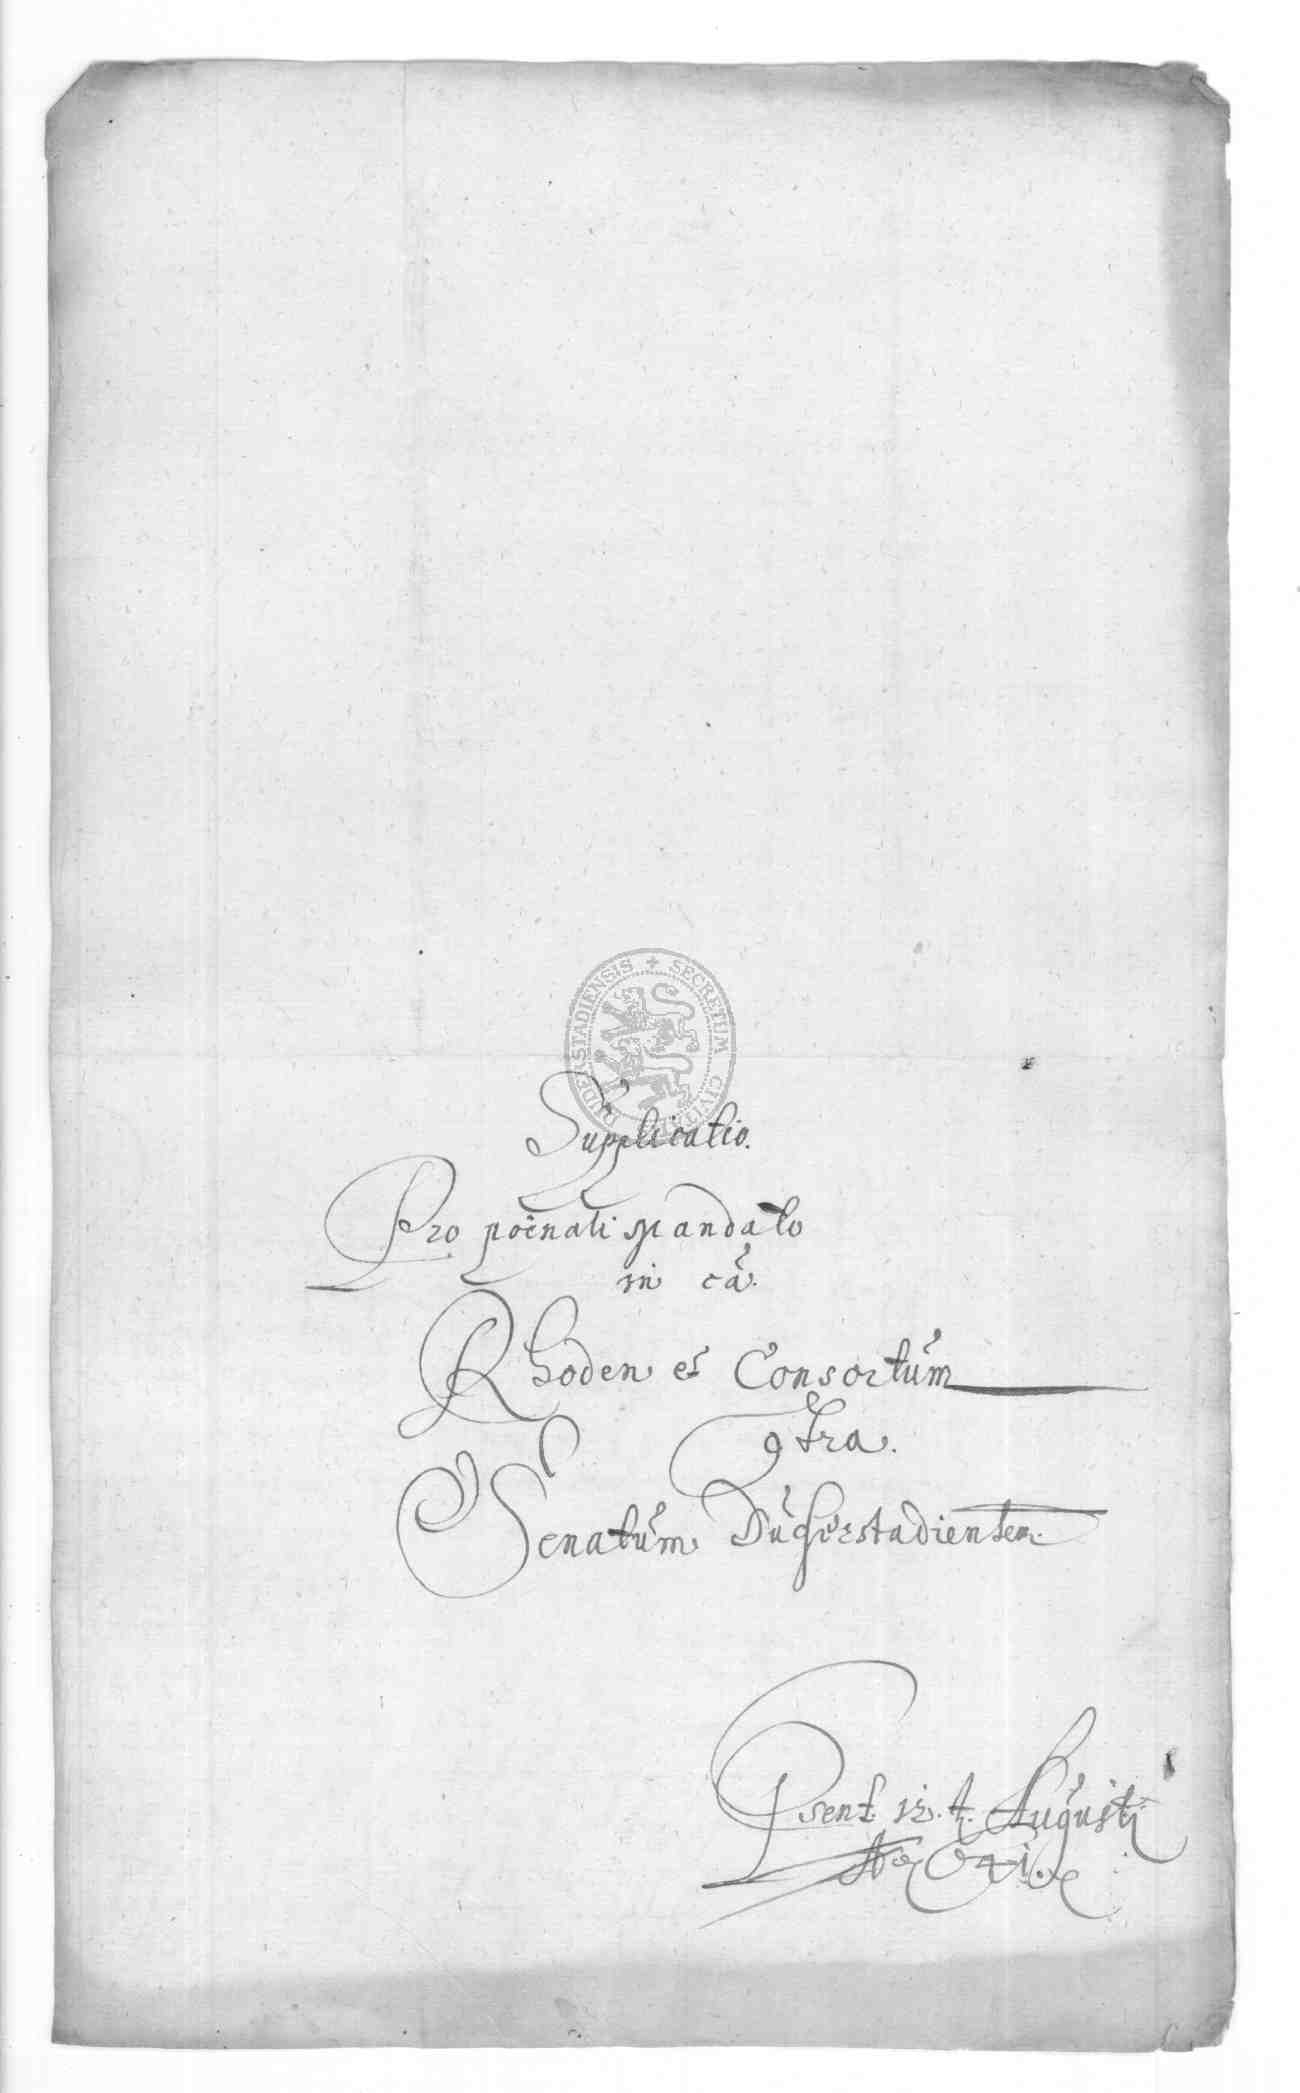 SECRETUM CIVITA DUDERSTADIENSIS
Supplicatio.
Pro poenali Mandato
in câ.
Rhoden et Consortum
9tra.
Senatum Duderstadiensem.
Psent. 12. t. Augusti
Ao 641.